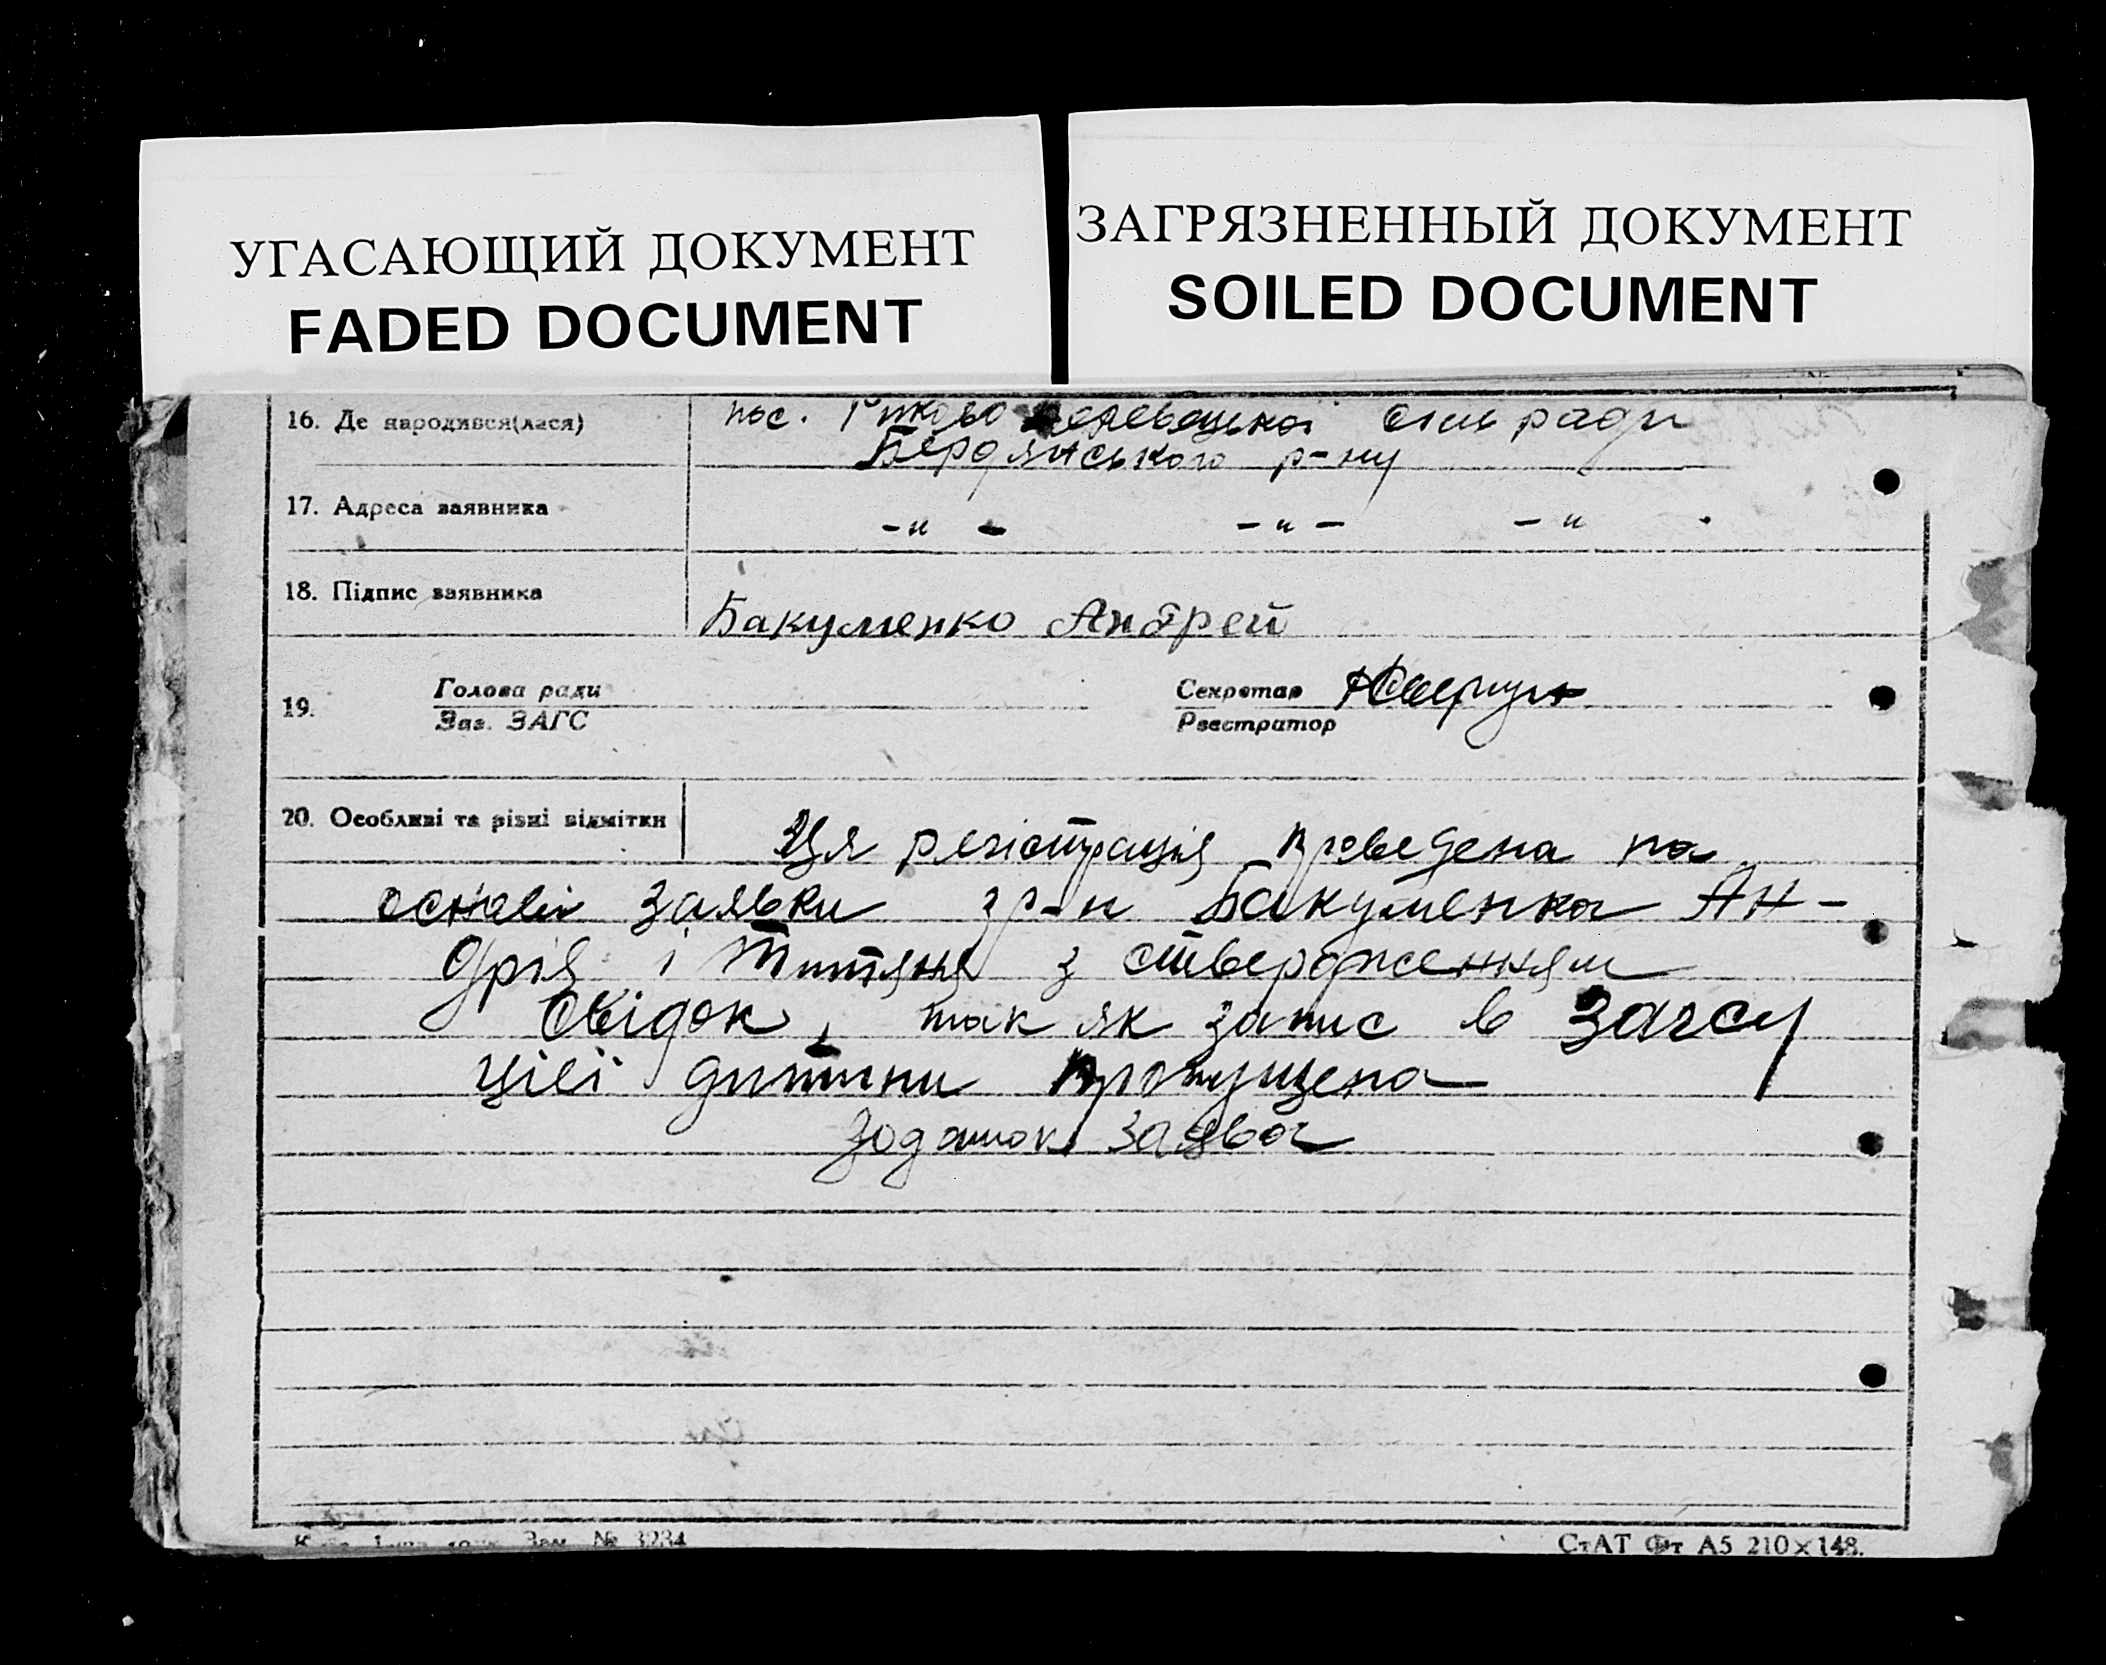 УГАСАЮЩИЙ ДОКУМЕНТ
FADED DOCUMENT
ЗАГРЯЗНЕННЫЙ ДОКУМЕНТ
SOILED DOCUMENT
16. Де народився(лася)
пос. сільради
Бердянського р-ну
17. Адреса заявника
-„- -„- -„
18. Підпис заявника
Бакуменко Андрей
19. Голова ради
Заг. ЗАГС
Секретар
Реєстратор
20. Особливі та різні відмітки
Ця регістрація проведена на
основі заявки гр-н Бакуменка Ан-
дрія і Титяни з ствердженням
свідок, так як запис в загсу
цієї дитини пропущена
заява
Зам. № 3234
СтАТ Фт А5 210×148.